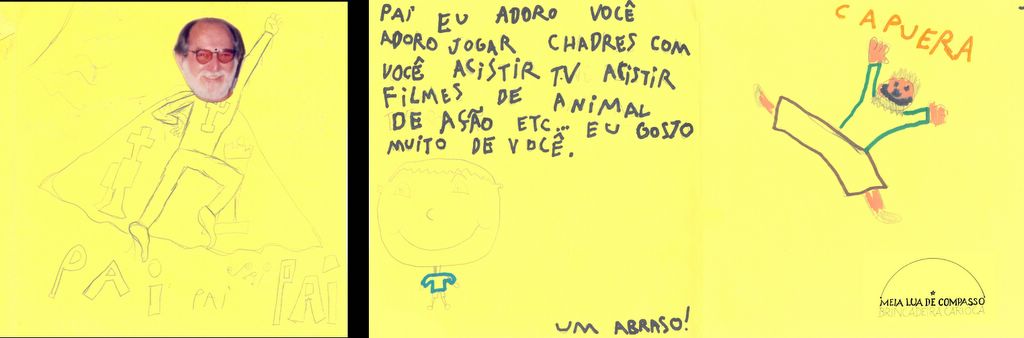 PAi
PAi
PAI
PAI EU ADORO VOCÊ
ADORO JOGAR CHADRES COM
VOCÊ ACISTIR TV ACISTIR
FILMES DE ANIMAL
DE AÇÃO ETC... EU GOSTO
MUITO DE VOCÊ.
UM ABRASO!
CAPUERA
MEIA LUA DE COMPASSO
BRINCADEIRA CARIOCA